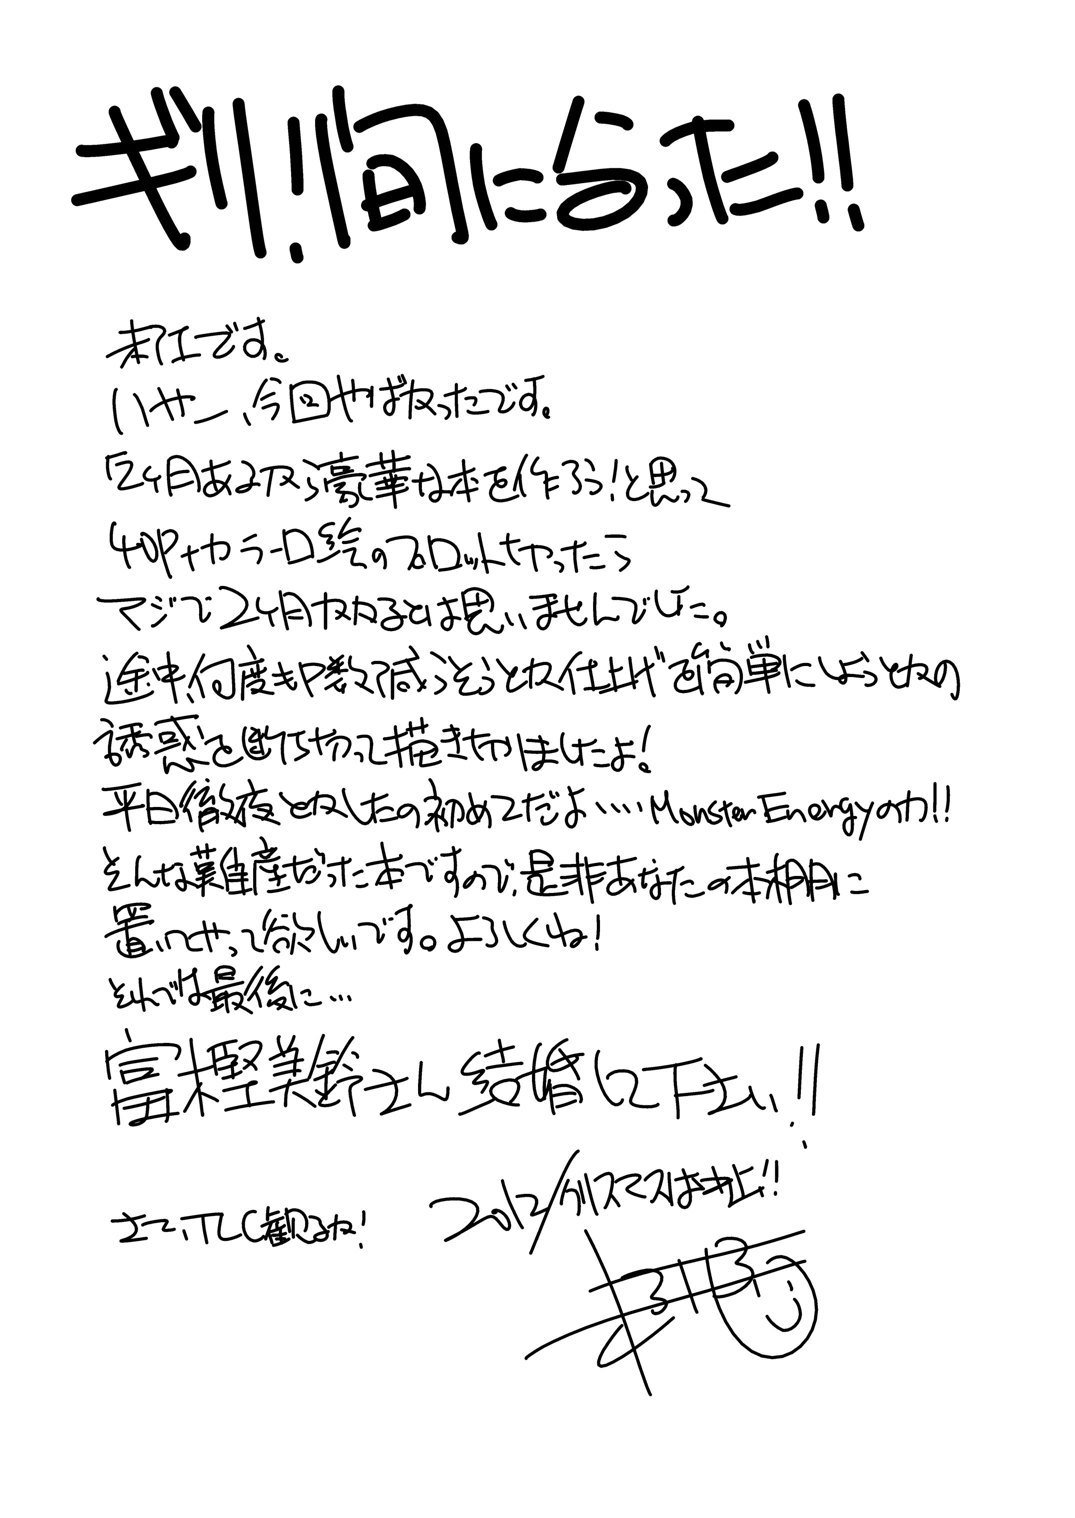 ギリ!間に合った!!
です。
いやー、今回やばかったです。
「2ヶ月あるから豪華な本を作ろう!と思って
40P+カラー口絵のプロットきったら
マジで2ヶ月かかるとは思いませんでした。
途中、何度もP数減らそうとか仕上げを簡単にしようとかの
誘惑を断ち切って描ききりましたよ!
平日徹夜とかしたの初めてだよ‥‥Monster Energyの力!!
そんな難産だった本ですので、是非あなたの本棚に
置いてやって欲しいです。よろしくね!
それでは最後に…
富樫美鈴さん結婚して下さい!!
さて、TLC観るか!
2012/クリスマスは中止!!